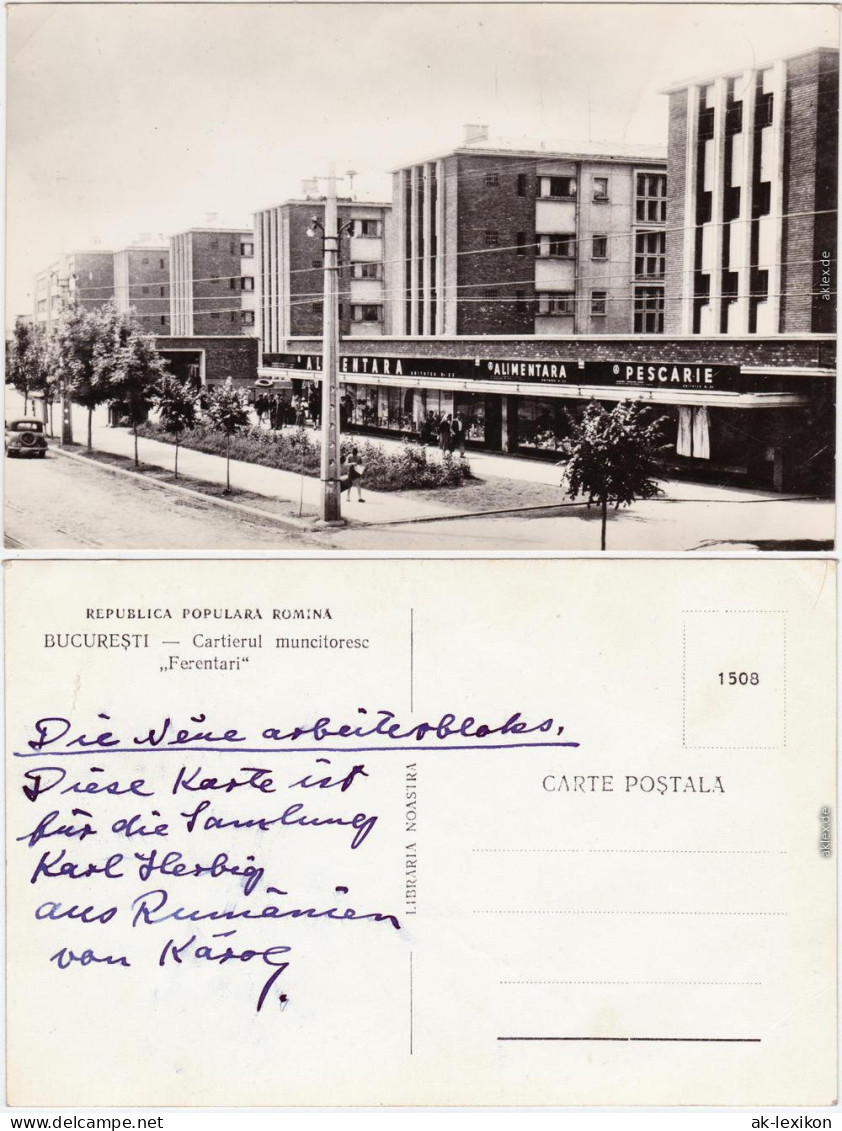 ALIMENTARA
ALIMENTARA
PESCARIE
aklex.de
REPUBLICA POPULARĂ ROMÎNĂ
BUCUREȘTI — Cartierul muncitoresc
„Ferentari“
1508
Die Nëue arbeiterbloks.
Diese Karte ist
für die Samlung
Karl Herbig
aus Rumänien
von Károly.
LIBRARIA NOASTRA
CARTE POȘTALĂ
aklex.de
www.ak-ansichtskarten.de
ak-lexikon